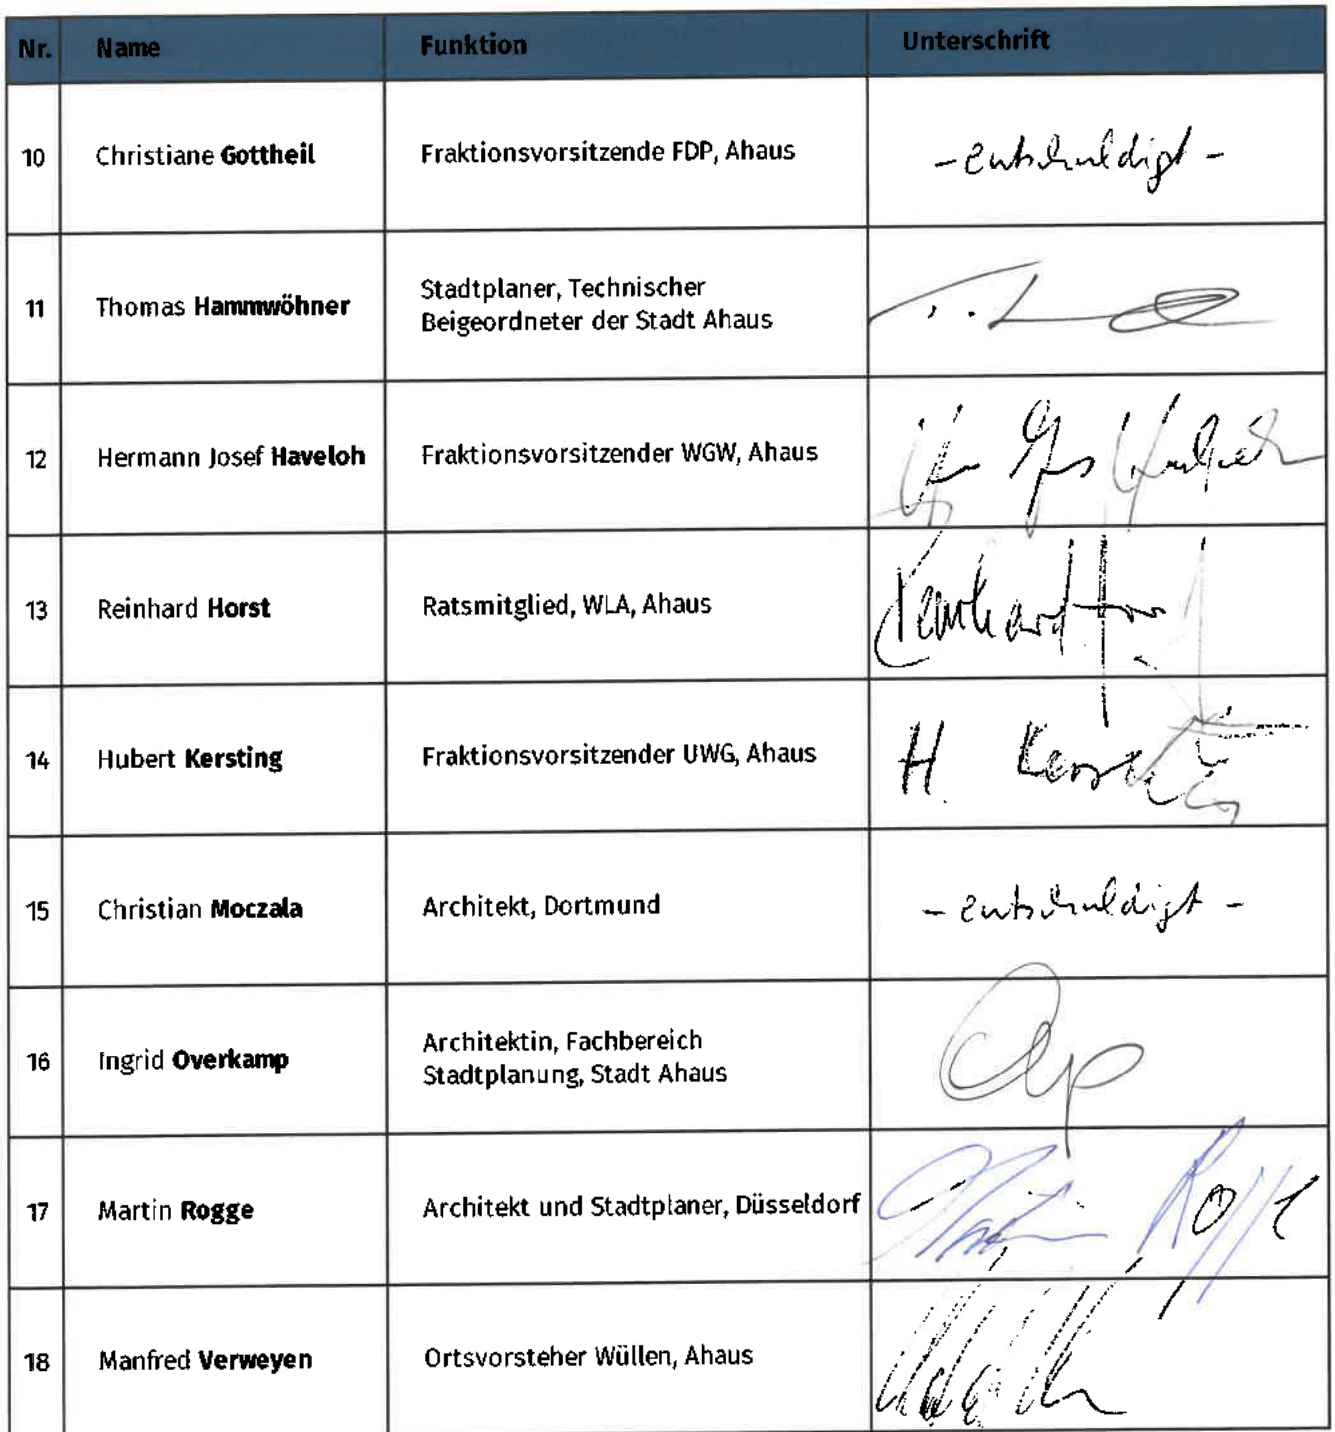 Nr. Name Funktion Unterschrift
10 Christiane Gottheil Fraktionsvorsitzende FDP, Ahaus - entschuldigt -
11 Thomas Hammwöhner Stadtplaner, Technischer
Beigeordneter der Stadt Ahaus
12 Hermann Josef Haveloh Fraktionsvorsitzender WGW, Ahaus
13 Reinhard Horst Ratsmitglied, WLA, Ahaus Reinhard
14 Hubert Kersting Fraktionsvorsitzender UWG, Ahaus H. Kersting
15 Christian Moczala Architekt, Dortmund - entschuldigt -
16 Ingrid Overkamp Architektin, Fachbereich
Stadtplanung, Stadt Ahaus
17 Martin Rogge Architekt und Stadtplaner, Düsseldorf Martin Rogge
18 Manfred Verweyen Ortsvorsteher Wüllen, Ahaus